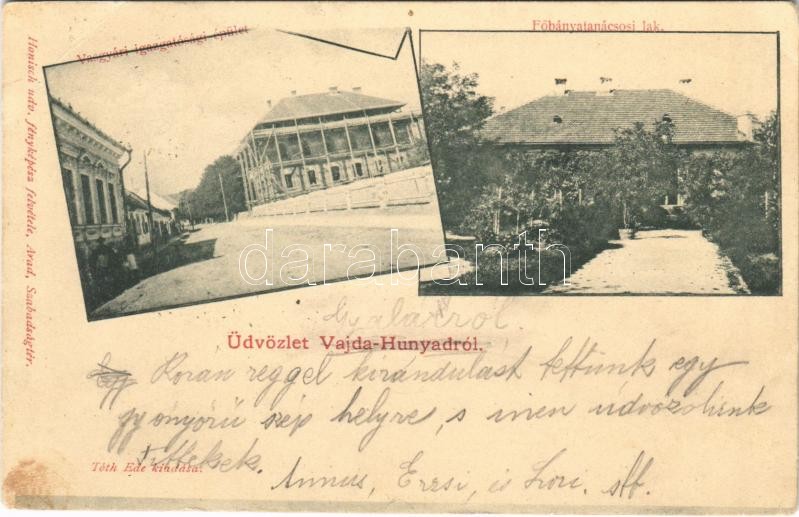 Vasgyári igazgatósági épület
Főbányatanácsosi lak.
Honisch udv. fényképész felvétele, Arad, Szabadságtér.
darabanth
Gyalárról.
Üdvözlet Vajda-Hunyadról.
Koran reggel kirándulást tettünk egy
gyönyörű szép helyre, s inen üdvözölünk
titeket.
Tóth Ede kiadása.
Annus, Erzsi, és